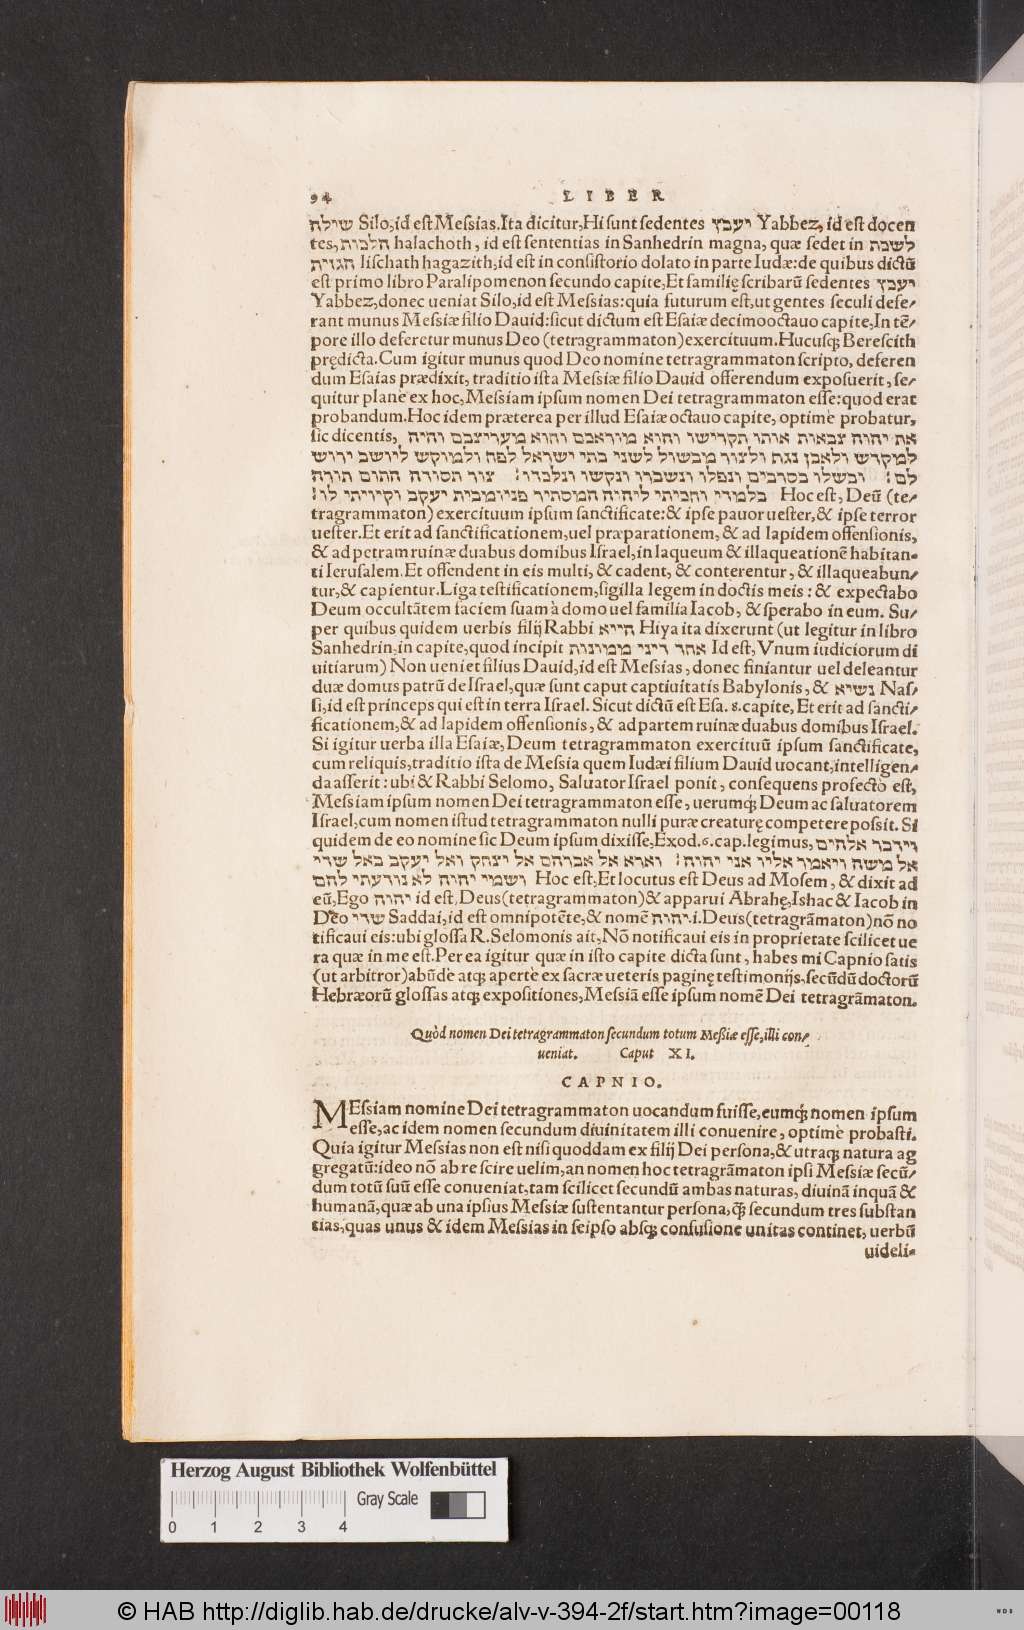 94 LIBER
שילה Silo,id est Messias.Ita dicitur,Hi sunt sedentes יעבץ Yabbez, id est docen
tes,הלכות halachoth, id est sententias in Sanhedrin magna, quæ sedet in לשכת
הגזית lischath hagazith,id est in consistorio dolato in parte Iudæ:de quibus dictū
est primo libro Paralipomenon secundo capite,Et familię scribarū sedentes יעבץ
Yabbez,donec ueniat Silo,id est Messias:quia futurum est,ut gentes seculi defe/
rant munus Messiæ filio Dauid:sicut dictum est Esaiæ decimooctauo capite,In tē/
pore illo deferetur munus Deo (tetragrammaton) exercituum.Hucusq; Berescith
prędicta.Cum igitur munus quod Deo nomine tetragrammaton scripto, deferen
dum Esaias prædixit, traditio ista Messiæ filio Dauid offerendum exposuerit, se/
quitur planè ex hoc, Messiam ipsum nomen Dei tetragrammaton esse:quod erat
probandum.Hoc idem præterea per illud Esaiæ octauo capite, optimè probatur,
sic dicentis, את יהוה צבאות אותו תקדישו והוא מוראכם והוא מעריצכם והיה
למקדש ולאבן נגף ולצור מכשול לשני בתי ישראל לפח ולמוקש ליושב ירוש
לם: וכשלו בם רבים ונפלו ונשברו ונוקשו ונלכדו: צור תעודה חתום תורה
בלמודי וחכיתי ליהוה המסתיר פניו מבית יעקב וקויתי לו: Hoc est, Deū (te/
tragrammaton) exercituum ipsum sanctificate:& ipse pauor uester,& ipse terror
uester.Et erit ad sanctificationem,uel præparationem, & ad lapidem offensionis,
& ad petram ruinæ duabus domibus Israel, in laqueum & illaqueationē habitan-
ti Ierusalem.Et offendent in eis multi, & cadent, & conterentur, & illaqueabun/
tur,& capientur.Liga testificationem,sigilla legem in doctis meis : & expectabo
Deum occultātem faciem suam à domo uel familia Iacob, & sperabo in eum. Su/
per quibus quidem uerbis filij Rabbi חייא Hiya ita dixerunt (ut legitur in libro
Sanhedrin,in capite,quod incipit אחד דיני ממונות Id est, Vnum iudiciorum di
uitiarum) Non ueniet filius Dauid,id est Messias, donec finiantur uel deleantur
duæ domus patrū de Israel,quæ sunt caput captiuitatis Babylonis, & נשיא Nas/
si,id est princeps qui est in terra Israel. Sicut dictū est Esa. 8.capite, Et erit ad sancti/
ficationem,& ad lapidem offensionis, & ad partem ruinæ duabus domibus Israel.
Si igitur uerba illa Esaiæ, Deum tetragrammaton exercituū ipsum sanctificate,
cum reliquis,traditio ista de Messia quem Iudæi filium Dauid uocant,intelligen/
da asserit: ubi & Rabbi Selomo, Saluator Israel ponit, consequens profectò est,
Messiam ipsum nomen Dei tetragrammaton esse, uerumq; Deum ac saluatorem
Israel,cum nomen istud tetragrammaton nulli puræ creaturę competere possit. Si
quidem de eo nomine sic Deum ipsum dixisse,Exod.6.cap.legimus, וידבר אלהים
אל משה ויאמר אליו אני יהוה: וארא אל אברהם אל יצחק ואל יעקב באל שדי
ושמי יהוה לא נודעתי להם Hoc est,Et locutus est Deus ad Mosem, & dixit ad
eū, Ego יהוה id est, Deus(tetragrammaton)& apparui Abrahę,Ishac & Iacob in
Deo שדי Saddai,id est omnipotēte,& nomē יהוה.i.Deus(tetragrāmaton)nō no
tificaui eis:ubi glossa R.Selomonis ait,Nō notificaui eis in proprietate scilicet ue
ra quæ in me est.Per ea igitur quæ in isto capite dicta sunt, habes mi Capnio satis
(ut arbitror)abūdè atq; apertè ex sacræ ueteris paginę testimonijs,secūdū doctorū
Hebræorū glossas atq; expositiones,Messiā esse ipsum nomē Dei tetragrāmaton.
Quòd nomen Dei tetragrammaton secundum totum Messiæ esse,illi con/
ueniat. Caput XI.
CAPNIO.
MEssiam nomine Dei tetragrammaton uocandum fuisse,eumq́; nomen ipsum
esse,ac idem nomen secundum diuinitatem illi conuenire, optimè probasti.
Quia igitur Messias non est nisi quoddam ex filij Dei persona,& utraq; natura ag
gregatū:ideo nō ab re scire uelim,an nomen hoc tetragrāmaton ipsi Messiæ secū/
dum totū suū esse conueniat,tam scilicet secundū ambas naturas, diuinā inquā &
humanā,quæ ab una ipsius Messiæ sustentantur persona,q̄ secundum tres substan
tias,quas unus & idem Messias in seipso absq; confusione unitas continet, uerbū
uideli-
Herzog August Bibliothek Wolfenbüttel
Gray Scale
0 1 2 3 4
© HAB http://diglib.hab.de/drucke/alv-v-394-2f/start.htm?image=00118